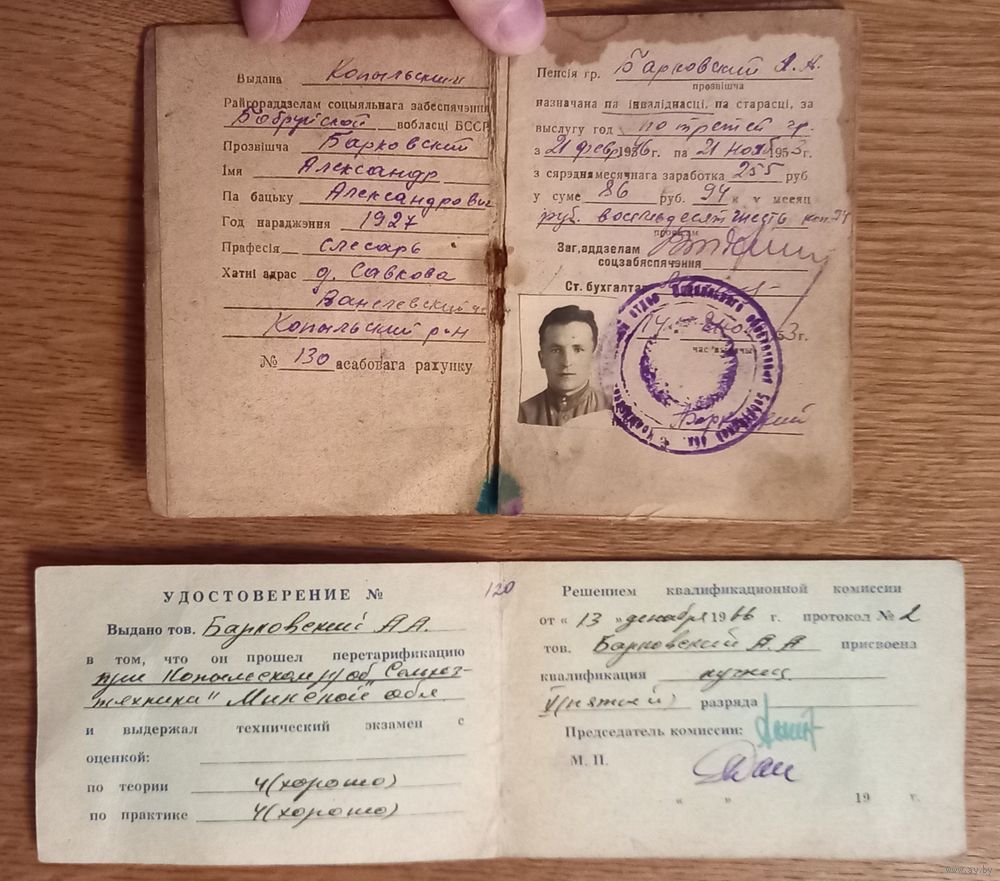 Выдана Копыльским
Райгораддзелам сацыяльнага забеспячэння
Бобруйской вобласці БССР
Прозвішча Барковский
Імя Александр
Па бацьку Александрович
Год нараджэння 1927
Прафесія слесарь
Хатні адрас д. Савкова
Копыльский р-н
№ 130 асабовага рахунку
Пенсія гр. Барковский А. А.
прозвішча
назначана па інваліднасці, па старасці, за
выслугу год по третей гр.
з 21 февр 1946г. па 21 ноя 1953г.
з сярэднямесячнага заработка 255 руб
у суме 86 руб. 94 к у месяц
руб. восемьдесят шесть коп. 94
Заг. аддзелам
соцзабяспячэння
Ст. бухгалтар
3г.
Барковский
УДОСТОВЕРЕНИЕ № 120
Выдано тов. Барковский А А.
в том, что он прошел перетарификацию
при Копыльском р/об „Сельхоз-
техника" Минской обл
и выдержал технический экзамен с
оценкой:
по теории 4 (хорошо)
по практике 4 (хорошо)
Решением квалификационной комиссии
от « 13 » декабря 1966 г. протокол № 2
тов. Барковский А. А присвоена
квалификация кузнец
V (пятой) разряда
Председатель комиссии:
М. П.
« » 19 г.
www.ay.by